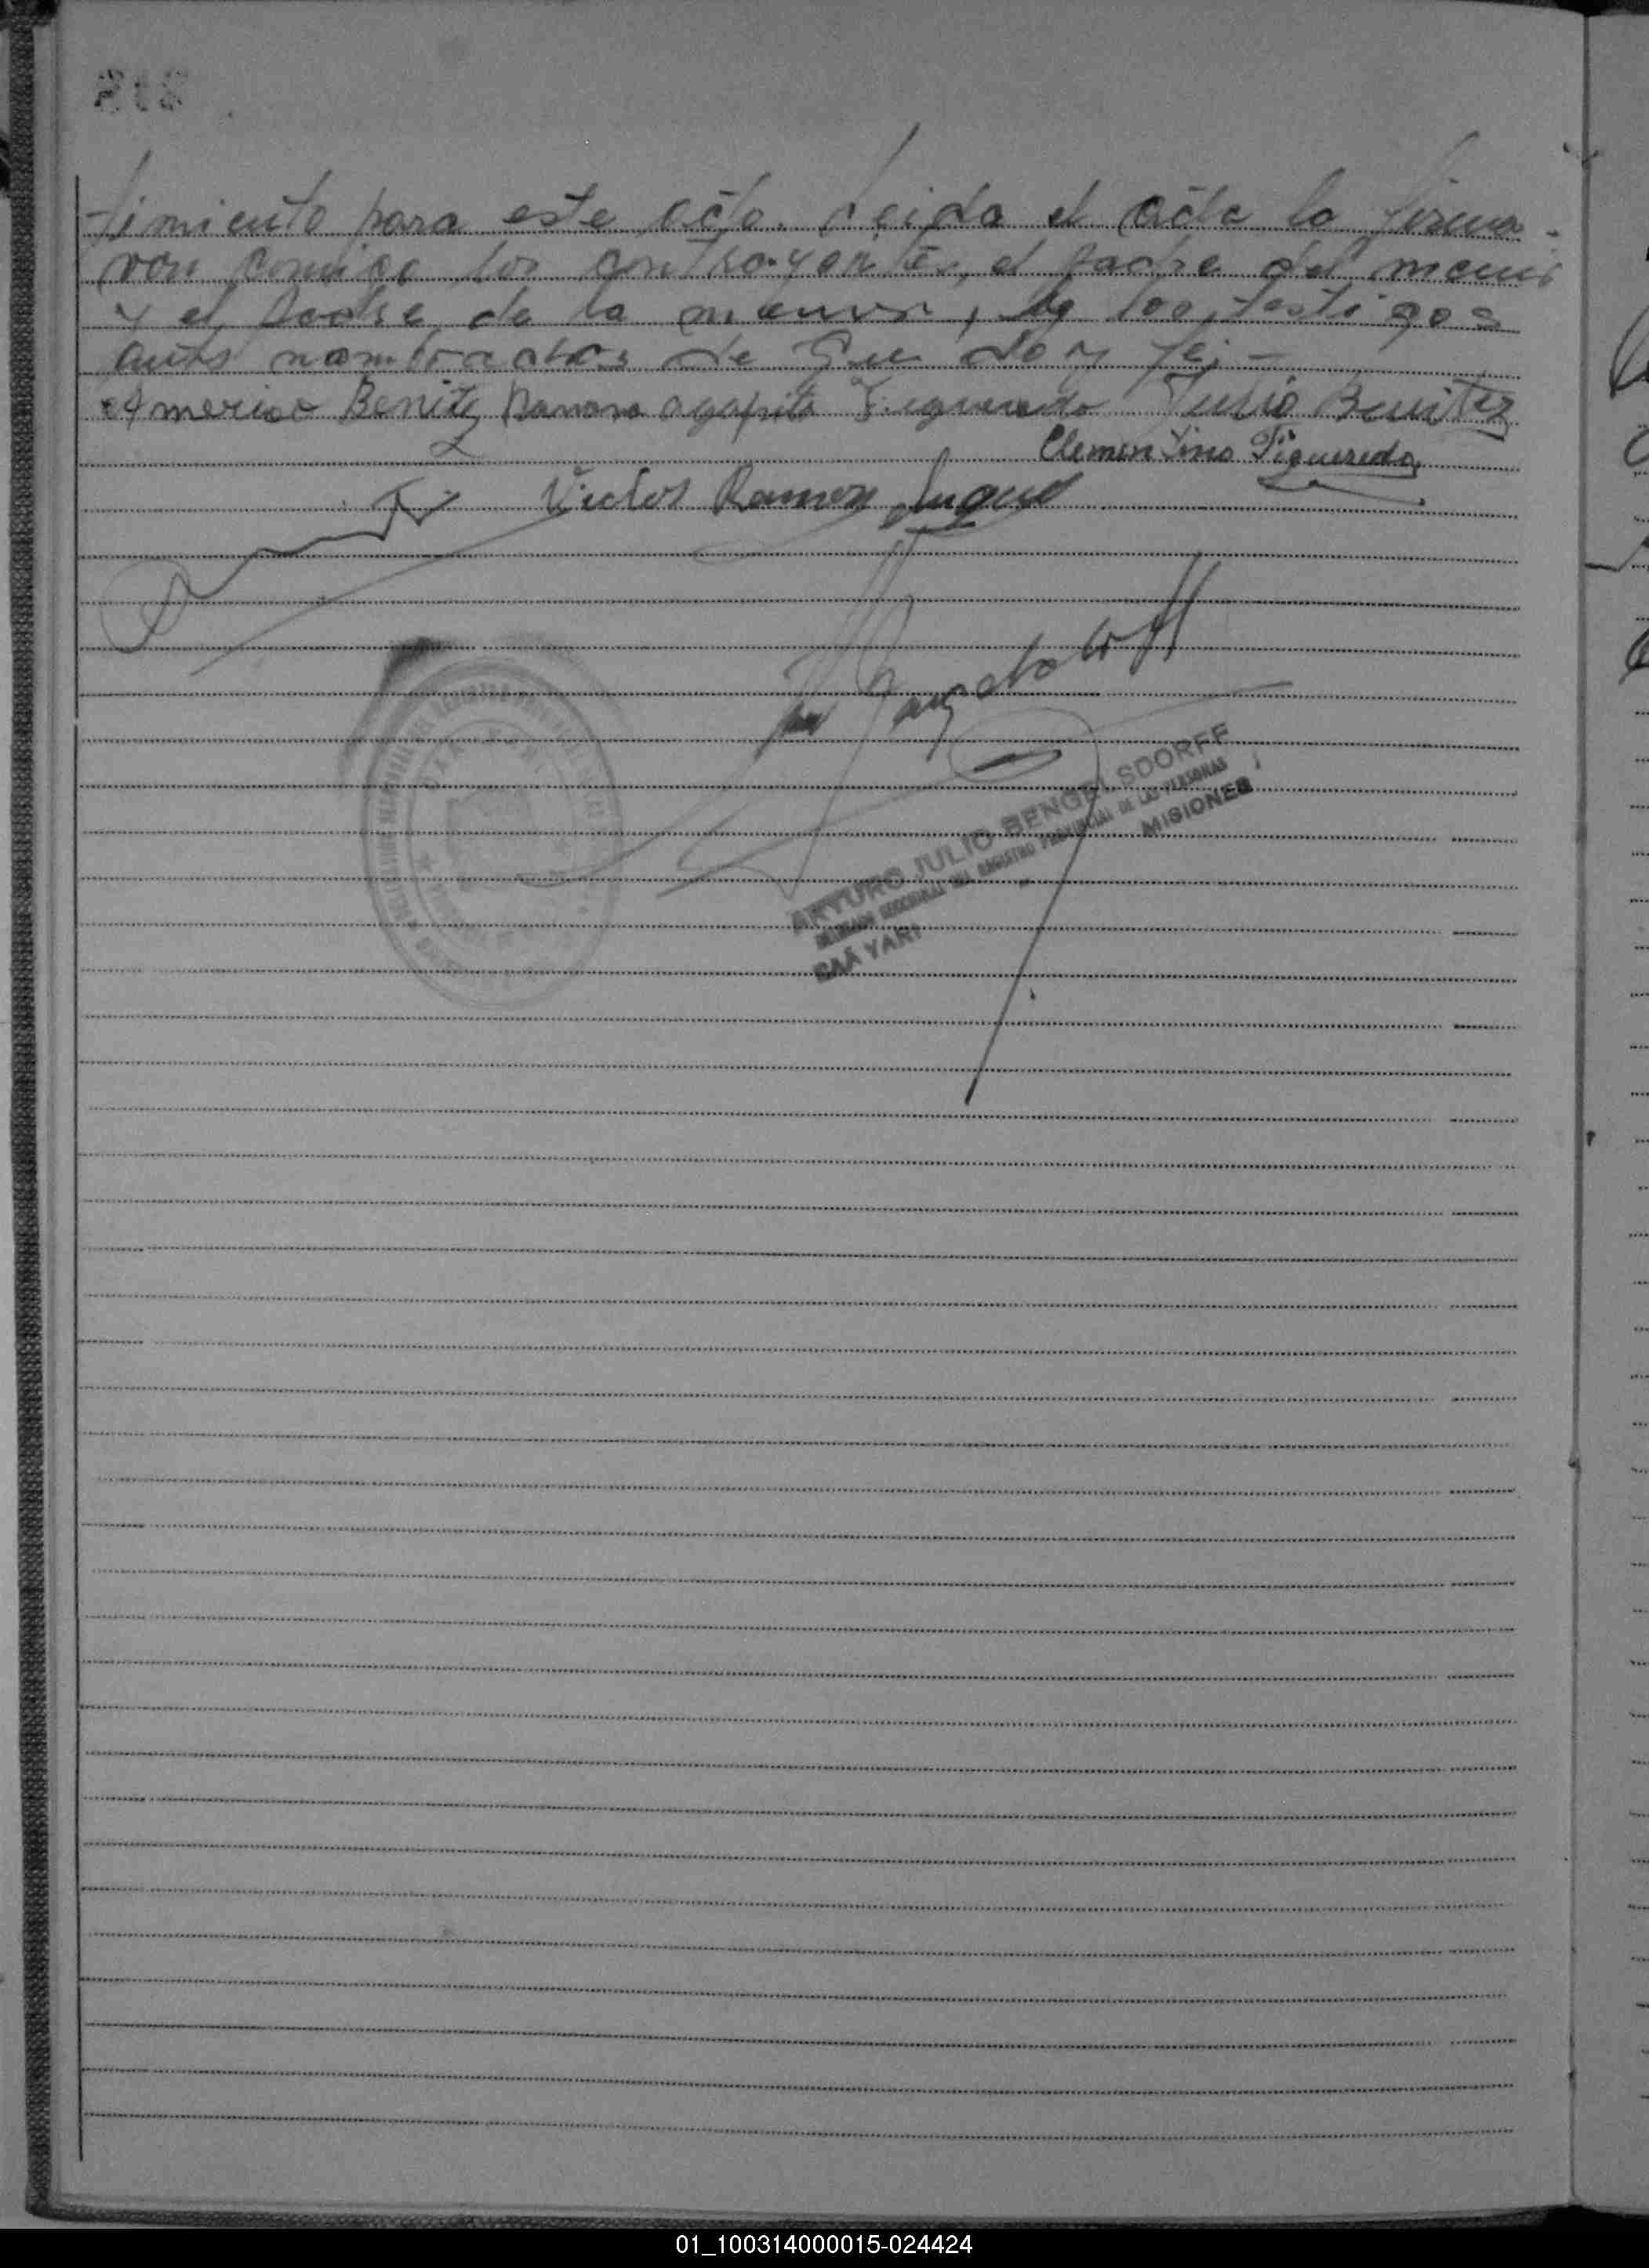 timiento para este acto. Leida el acta la firma-
ron conmigo los contrayentes, el padre del menor
y el padre de la menor, y los testigos
antes nombrados de que doy fe;-
Americo Benitez Ramona Agapita Figueredo Julio Benitez
Clementino Figueredo
Victor Ramon Luque
ARTURO JULIO BENGELSDORFF
SECCIONAL DEL REGISTRO PROVINCIAL DE LAS PERSONAS
CAÁ YARI MISIONES
01_100314000015-024424